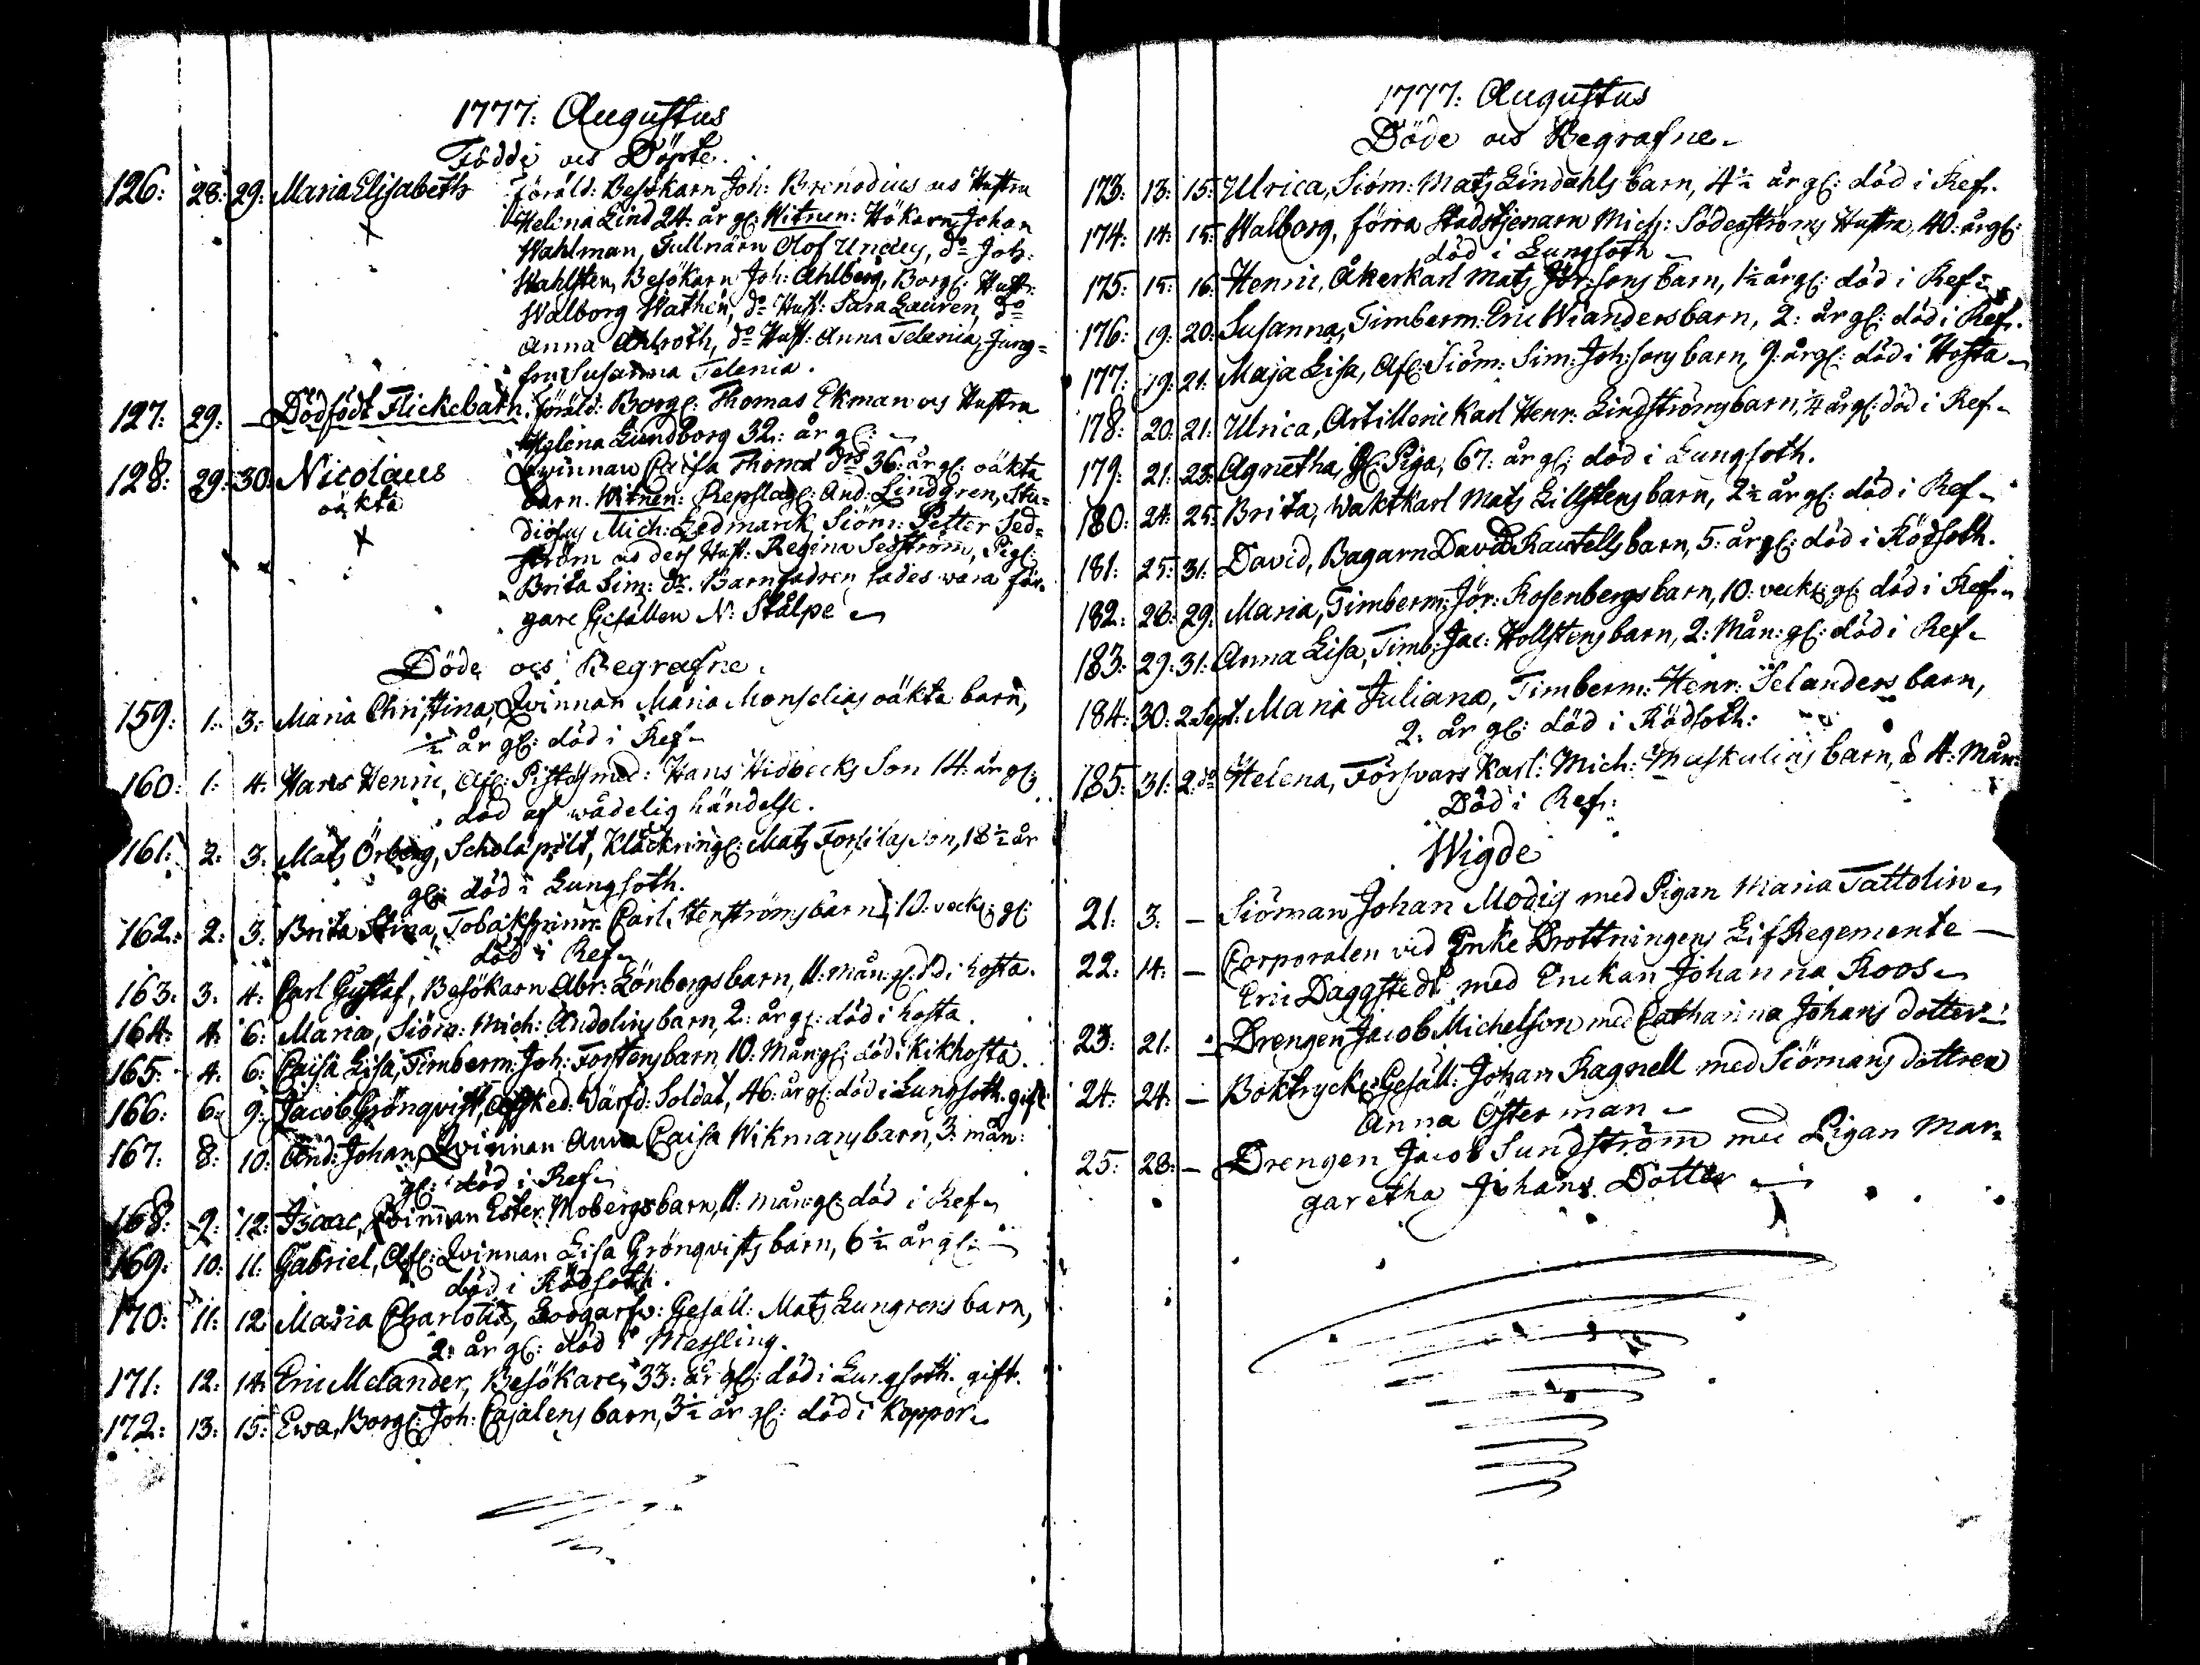 1777: Augustus
Födde och Döpte.
126: 28: 29: Maria Elisabeth föräld: Besökarn Joh: Brenodius och Hustru
Helena Lind 24. år gl: Witnen: Hökarn Johan
Wahlman, Tullnärn Olof Undey, do Joh:
Wahlsten, Besökarn Joh: Ahlberg, Borgl: Hustr:
Walborg Wathén, do Hust: Sara Lauren, do
Anna Ahlroth, do Hust: Anna Telenia, Jung=
fru Susanna Telenia.
127: 29: — Dödfödt Flickebarn. föräld: Borgl: Thomas Ekman och Hustru
Helena Lundborg 32: år gl:
128: 29: 30: Nicolaus Qvinnan Caisa Thoma Drs 36: år gl: oäkta
oäkta barn. Witnen: Repslag: And: Lindgren, Stu=
diosus Mich: Zedmarck Siöm: Petter Sed=
ström och dess Hust: Regina Sedström, Pigl:
Brita Sim: Dr. Barnfadren sades wara fär=
gare Gesällen N: Stålpe
Döde och Begrafne.
159: 1: 3: Maria Christina, Qvinnan Maria Monselias oäkta barn,
½ år gl: död i Ref
160: 1: 4: Hans Henric, Afl: Pistolsmed: Hans Hidbecks Son 14: år gl:
död af wådelig händelse.
161: 2: 3: Mats Örberg, Scholæ pilt, Klåckringl: Mats Forsilas Son, 18½ år
gl: död i Lungsoth.
162: 2: 3: Brita Stina, Tobakspinn: Carl Stenströms barn, 10: veck: gl:
död i Ref
163: 3: 4: Carl Gustaf, Besökarn Abr: Lönbergs barn, 11: Mån: gl: död i hosta.
164: 4: 6: Maria, Siöm: Mich: Andolins barn, 2: år gl: död i hosta.
165: 4: 6: Caisa Lisa, Timberm: Joh: Forstens barn, 10: Mån gl: död i Kikhosta.
166: 6: 9: Jacob Grönqvist, Afsked: Värfd: Soldat, 46: år gl: död i Lungsoth. gift.
167: 8: 10: And: Johan, Qvinnan Anna Caisa Wikmans barn, 3: mån:
gl: död i Ref
168: 9: 12: Isaac, Qvinnan Ester Mobergs barn, 11: mån: gl: död i Ref
169: 10: 11: Gabriel, Afl: Qvinnan Lisa Grönqvists barn, 6½ år gl:
död i Rödsoth.
170: 11: 12 Maria Charlotta, Logarfw: Gesäll: Mats Lungrens barn,
2: år gl: död i Messling.
171: 12: 14: Eric Melander, Besökare, 33: år gl: död i Lungsoth. gift.
172: 13: 15: Ewa, Borgl: Joh: Cajalens barn, 3½ år gl: död i Koppor
1777: Augustus
Döde och Begrafne
173: 13: 15: Ulrica, Siöm: Mats Lindahls barn, 4½ år gl: död i Ref.
174: 14: 15: Walborg, förra Stadstjenarn Mich: Söderströms Hustru, 40: år gl:
död i Lungsoth
175: 15: 16: Henric, Åkerkarl Mats Jör:sons barn, 1½ år gl: död i Ref
176: 19: 20: Susanna, Timberm: Eric Wianders barn, 2: år gl: död i Ref.
177: 19: 21: Maja Lisa, Afl: Siöm: Sim: Joh:sons barn, 9: år gl: död i Hosta
178: 20: 21: Ulrica, Artillerie Karl Henr: Lindströms barn, ¼ år gl: död i Ref
179: 21: 23: Agnetha, Gl: Piga, 67: år gl: död i Lungsoth.
180: 24: 25: Brita, Waktkarl Mats Lillstens barn, 2½ år gl: död i Ref
181: 25: 31: David, Bagarn David Rautells barn, 5: år gl: död i Rödsoth.
182: 28: 29: Maria, Timberm: Jör: Rosenbergs barn, 10: veck: gl: död i Ref
183: 29: 31: Anna Lisa, Timb: Jac: Hollstens barn, 2: Mån: gl: död i Ref
184: 30: 2 Sept: Maria Juliana, Timberm: Henr: Selanders barn,
2: år gl: död i Rödsoth:
185: 31: 2 do Helena, Försvars Karl: Mich: Muskulins barn, 4: Mån:
Död i Ref:
Wigde
21: 3: — Siöman Johan Modig med Pigan Maria Tattolin
22: 14: — Corporalen vid Enke Drottningens Lif Regemente —
Eric Daggstedt med Enckan Johanna Roos
23: 21: — Drengen Jacob Michelson med Catharina Johans dotter
24: 24: — Boktrycks Gesäll: Johan Ragnell med Siömans dottren
Anna Österman
25: 28: — Drengen Jacob Sundström med Pigan Mar=
garetha Johans Dotter